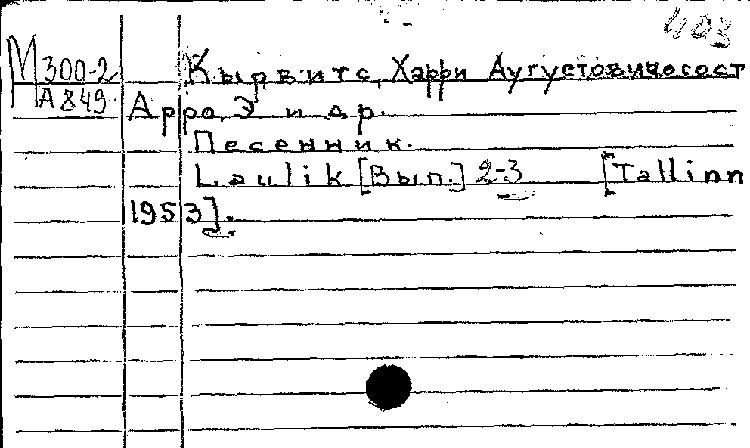 403
М 300-2 Кырвитс, Харри Аугустовичосост
А 849. Арро, Э и др.
Песенник.
Laulik [Вып.] 2-3 [Tallinn
1953].